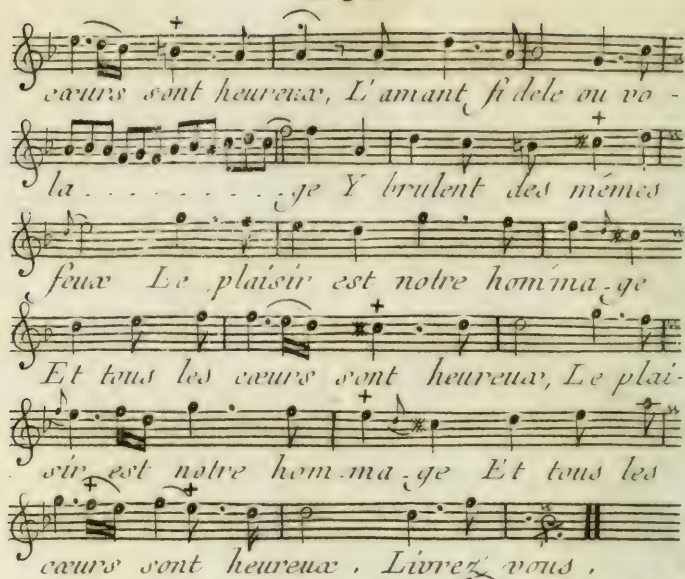 cœurs sont heureux, L'amant fidele ou vo-
la . . . . . . . . . . . ge Y brulent des mêmes
feux Le plaisir est notre homma-ge
Et tous les cœurs sont heureux, Le plai-
sir est notre hom-ma-ge Et tous les
cœurs sont heureux. Livrez vous.